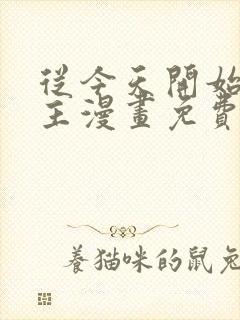 從今天開始
王漫畫免費
養貓咪的鼠兔